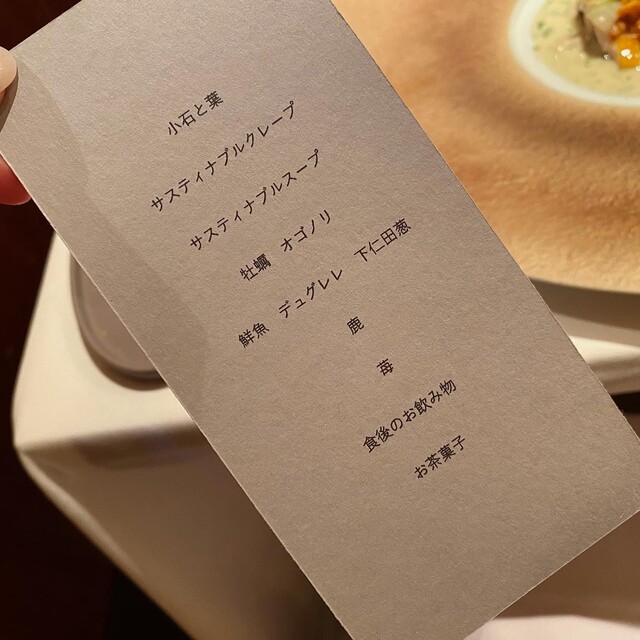 小石と葉
サスティナブルクレープ
サスティナブルスープ
牡蠣　オゴノリ
鮮魚　デュグレレ　下仁田葱
鹿
苺
食後のお飲み物
お茶菓子